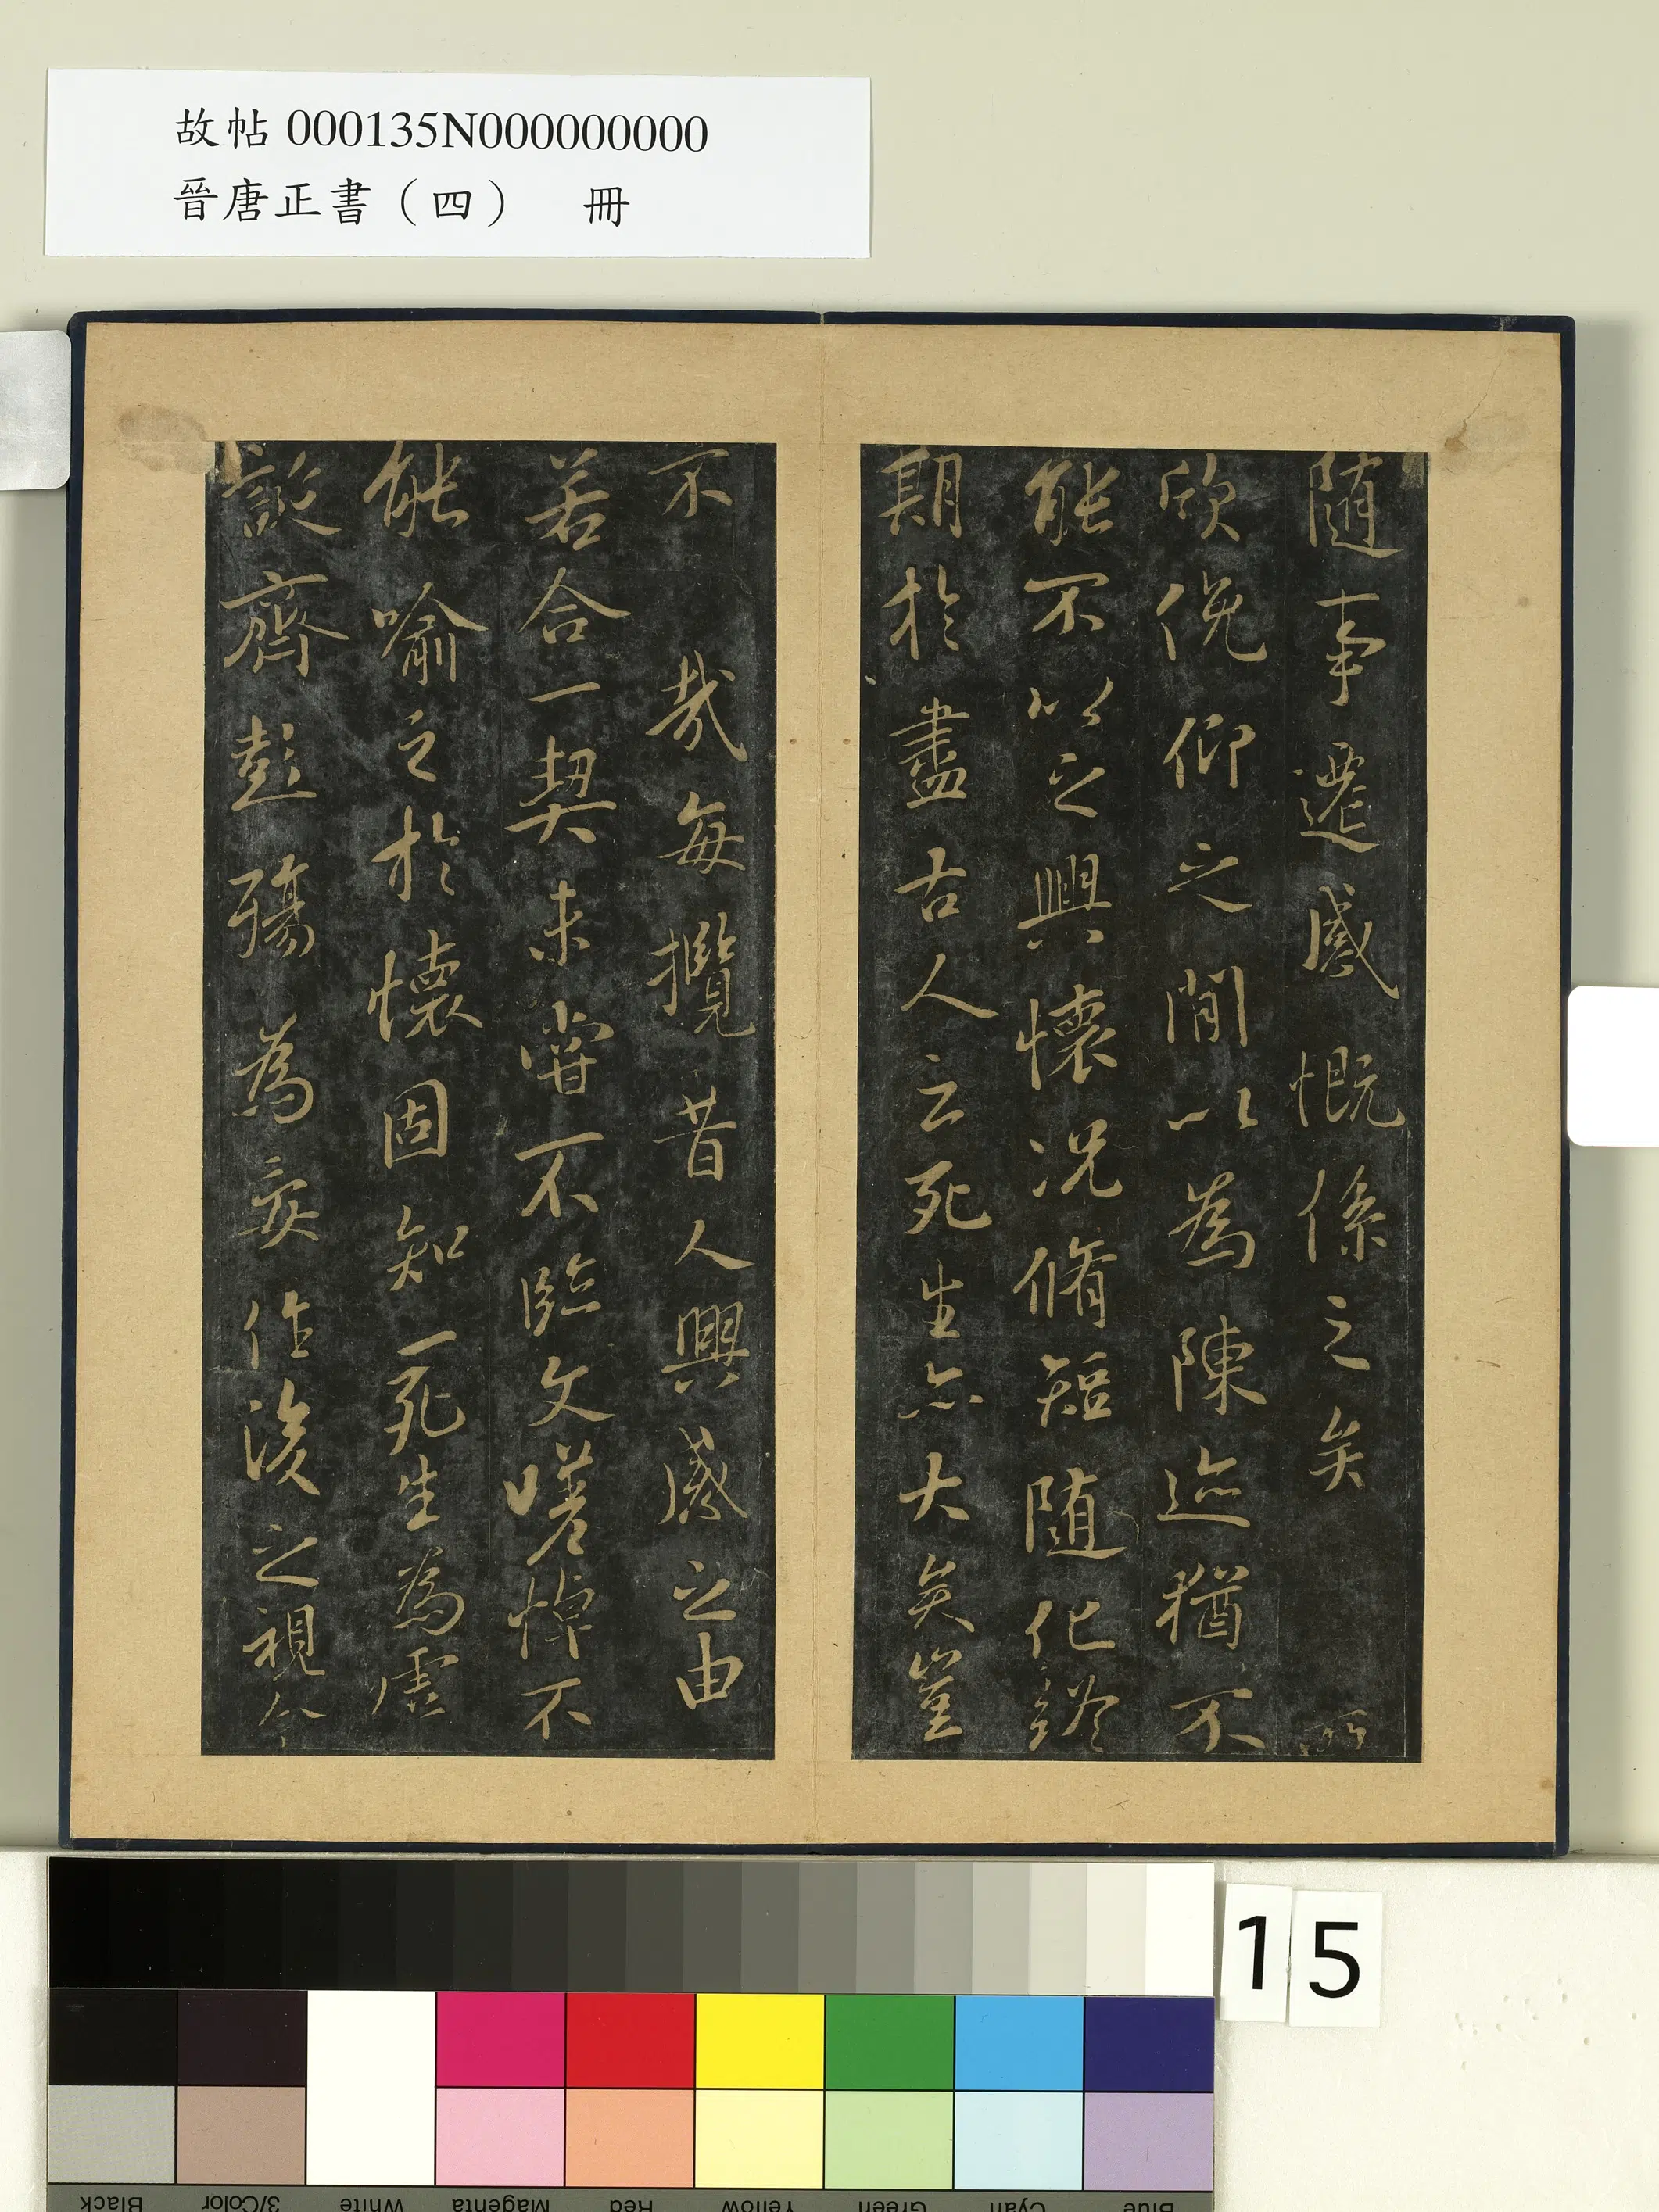 故帖 000135N000000000
晉唐正書（四） 冊
随事遷感慨係之矣
欣俛仰之閒以為陳迹猶不
能不以之興懷況脩短随化終
期於盡古人云死生亦大矣豈
不 哉每攬昔人興感之由
若合一契未甞不臨文嗟悼不
能喻之於懷固知一死生為虛
誕齊彭殤為妄作後之視今
15
Black
3/Color
White
Magenta
Red
Yellow
Green
Cyan
Blue